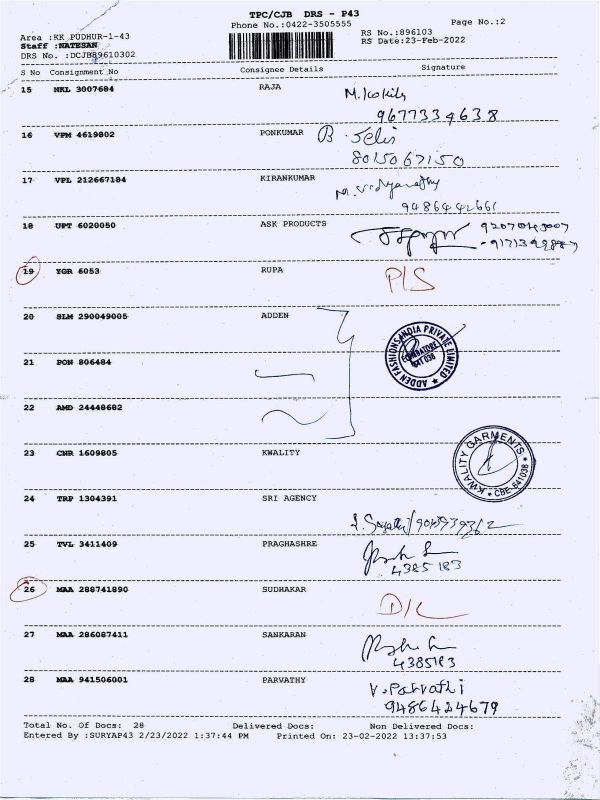 TPC/CJB DRS - P43
Phone No.:0422-3505555
Page No.:2
Area :KK PUDHUR-1-43
RS No.:896103
Staff :NATESAN
RS Date:23-Feb-2022
DRS No. :DCJB89610302
S No Consignment No Consignee Details Signature
15 NKL 3007684 RAJA
9677334638
16 VPM 4619802 PONKUMAR
8015067150
17 VPL 212667184 KIRANKUMAR
9486442661
18 UPT 6020050 ASK PRODUCTS
19 YGR 6053 RUPA P/S
20 SLM 290049005 ADDEN
ADDEN FASHIONS INDIA PRIVATE LIMITED
COIMBATORE
641 038
21 PON 806484
22 AMD 24448682
23 CNR 1609805 KWALITY
KWALITY GARMENTS
CBE-641038
24 TRP 1304391 SRI AGENCY
25 TVL 3411409 PRAGHASHRE
4385183
26 MAA 288741890 SUDHAKAR D/L
27 MAA 286087411 SANKARAN
4385183
28 MAA 941506001 PARVATHY V.Parvathi
9486424679
Total No. Of Docs: 28 Delivered Docs: Non Delivered Docs:
Entered By :SURYAP43 2/23/2022 1:37:44 PM Printed On: 23-02-2022 13:37:53